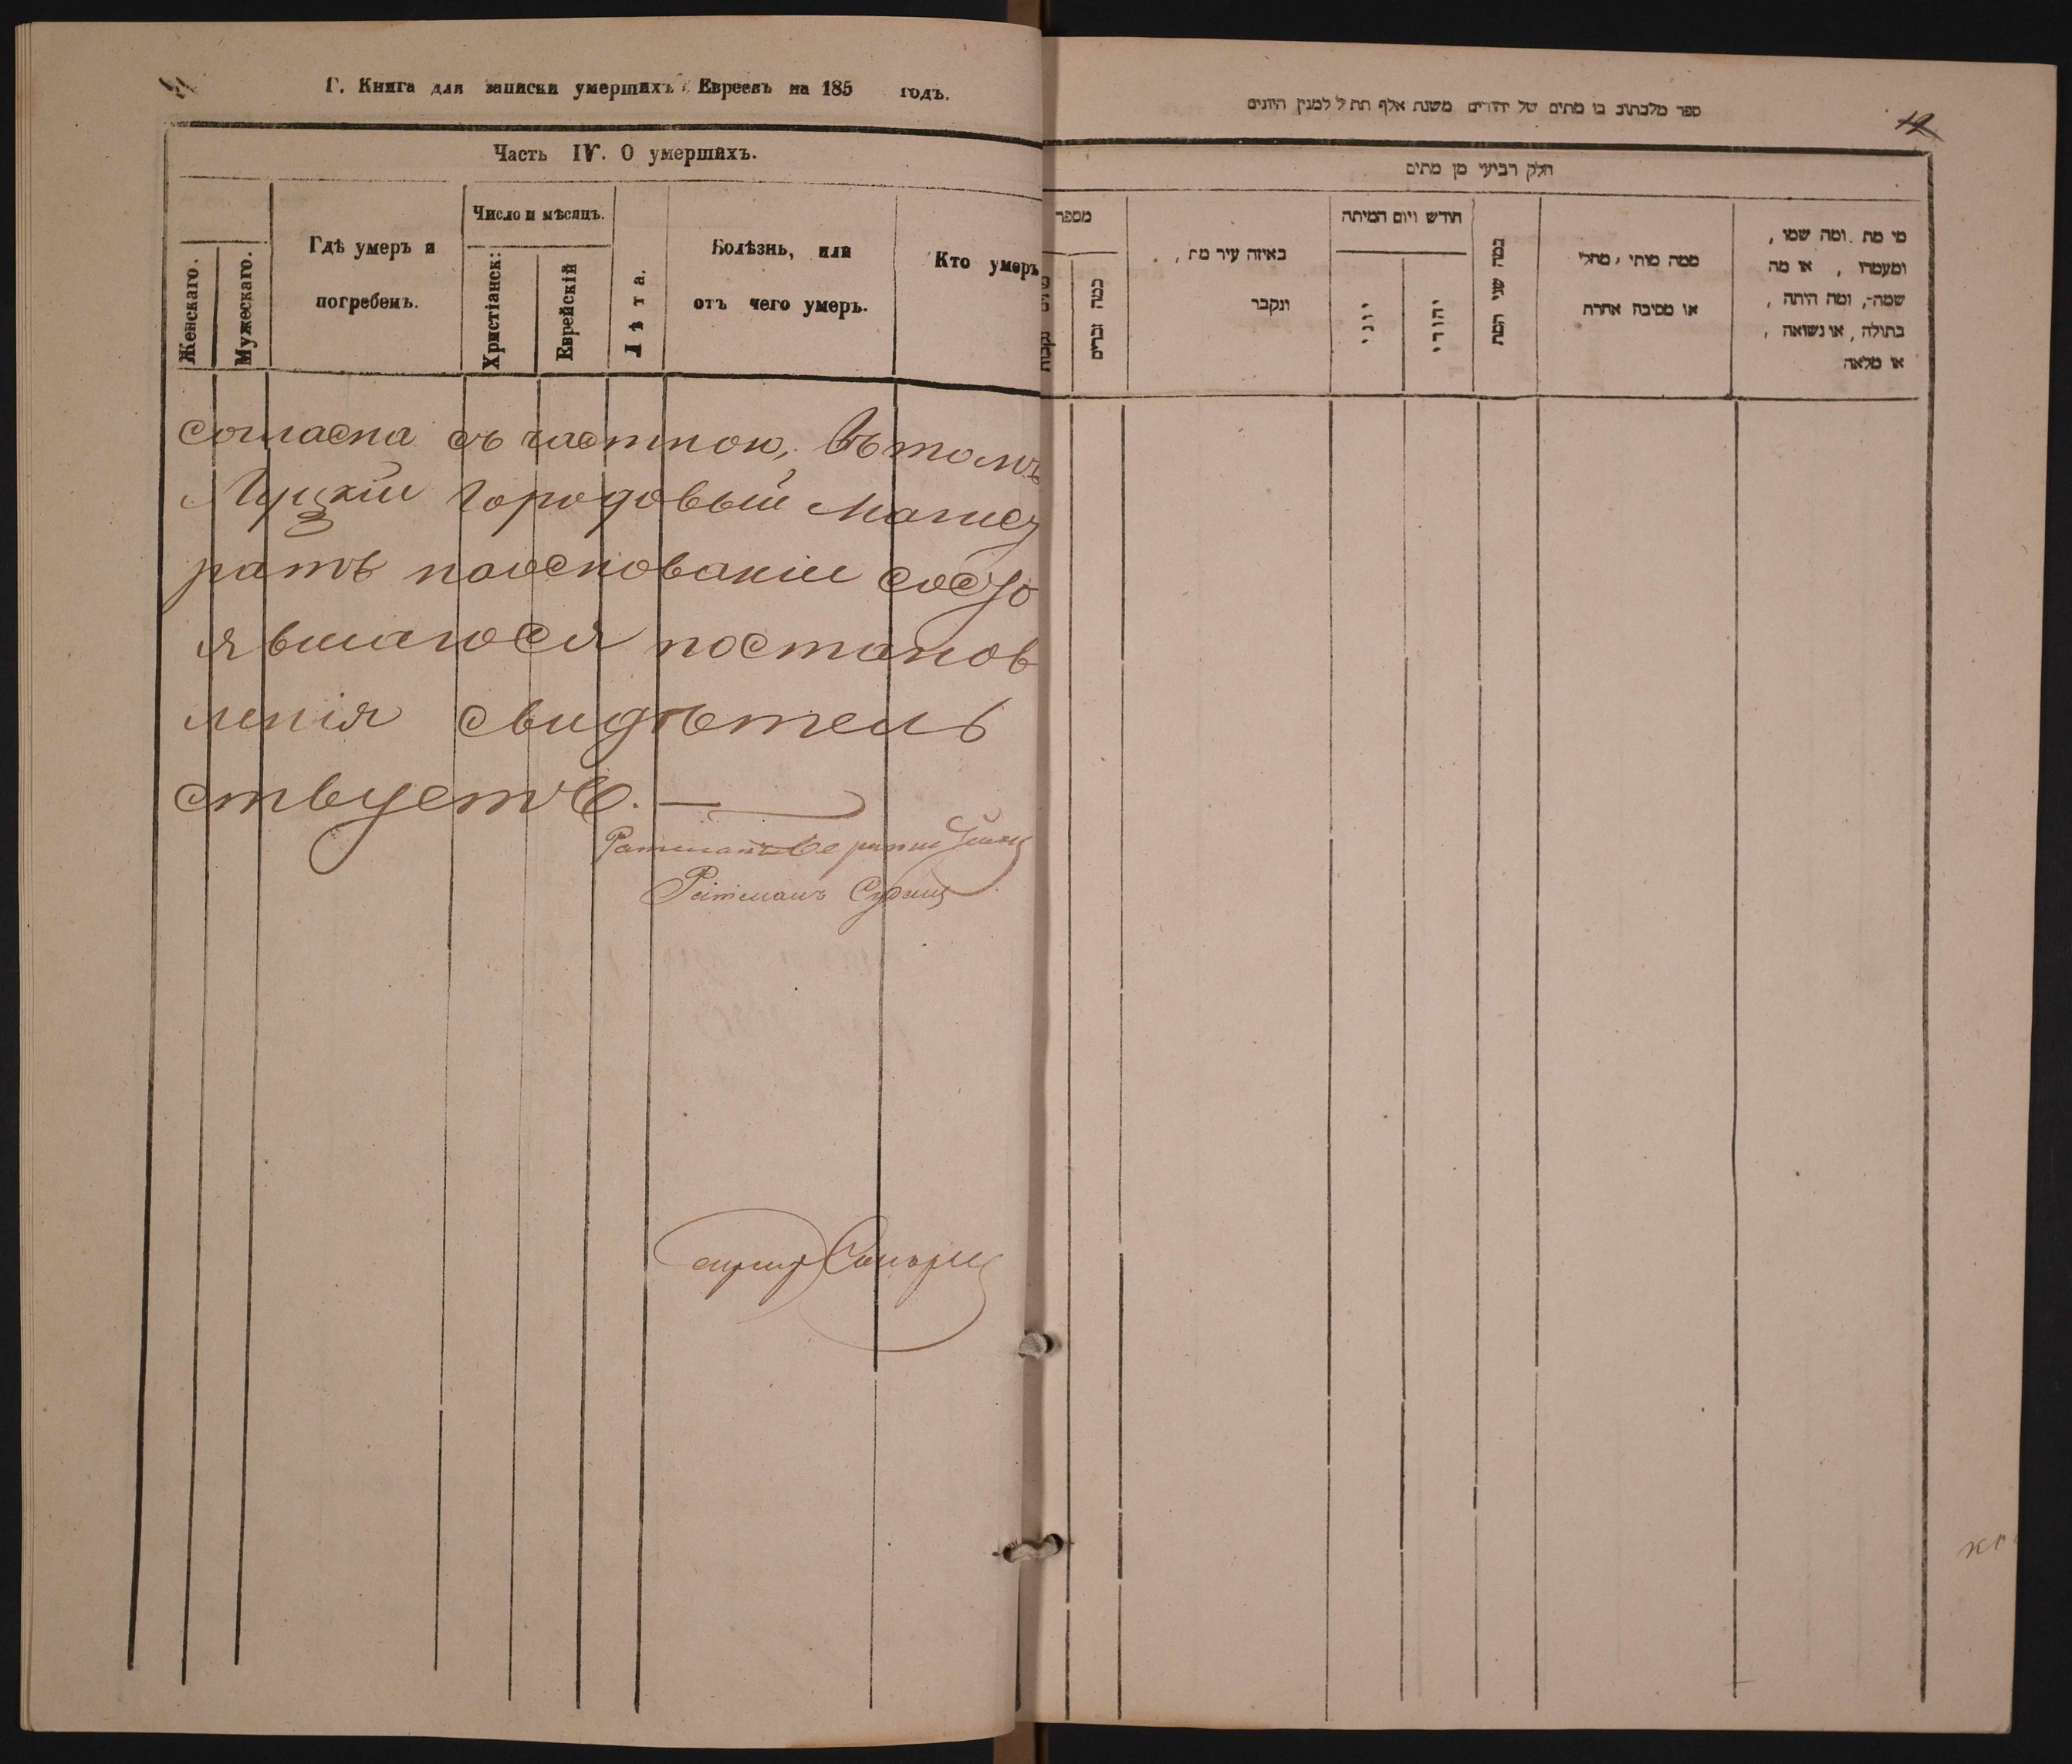 Г. Книга для записки умершихъ Евреевъ на 185 годъ.
Часть IV. О умершихъ.
Женскаго.
Мужескаго.
Гдѣ умеръ и
погребенъ.
Число и мѣсяцъ.
Христіанск:
Еврейскій
Лѣта.
Болѣзнь, или
отъ чего умеръ.
Кто умеръ
согласна съ частною, Въ томъ
Луцкій Городовый Магист
ратъ на основаніи состо
явшагося постанов
ленія свидѣтель
ствуетъ.
Ратманъ
Ратманъ
ספר מלכתוב בו מתים של יהודים משנת אלף תת ל למנין היונים
חלק רביעי מן מתים
מספר
כמה זכרים
באיזה עיר מת,
ונקבר
חודש ויום המיתה
יוני
יהודי
כמה שני המת
ממה מותי, מחלי
או מסיבה אחרת
מי מת ומה שמו,
ומעמדו, או מה
שמה, ומה היתה,
בתולה, או נשואה,
או מלאה